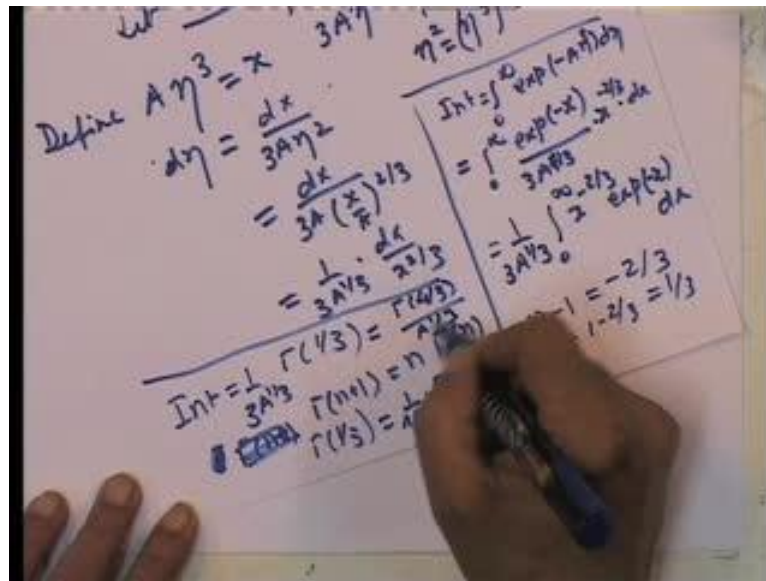 Let
3Aη
η² = (η³)
Define Aη³ = x
dη = dx / 3Aη²
= dx / 3A (x/A)^2/3
= 1/3A^1/3 · dx/x^2/3
Int = ∫₀^∞ exp(-Aη³)dη
= ∫₀^∞ exp(-x)/3A^1/3 x^-2/3 · dx
= 1/3A^1/3 ∫₀^∞ x^-2/3 exp(-x) dx
-1 = -2/3
1-2/3 = 1/3
Int = 1/3A^1/3 Γ(1/3) = Γ(4/3)/A^1/3
Γ(n+1) = n
Γ(1/3) =